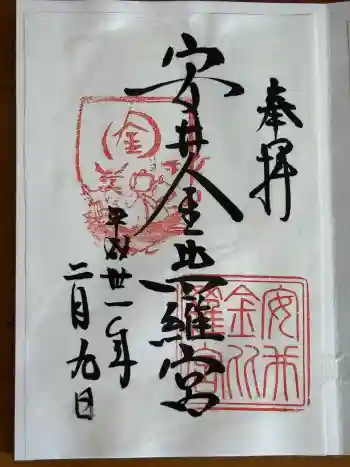 奉拝
安井金比羅宮
平成卅一年
二月九日
安井
金比
羅宮
金